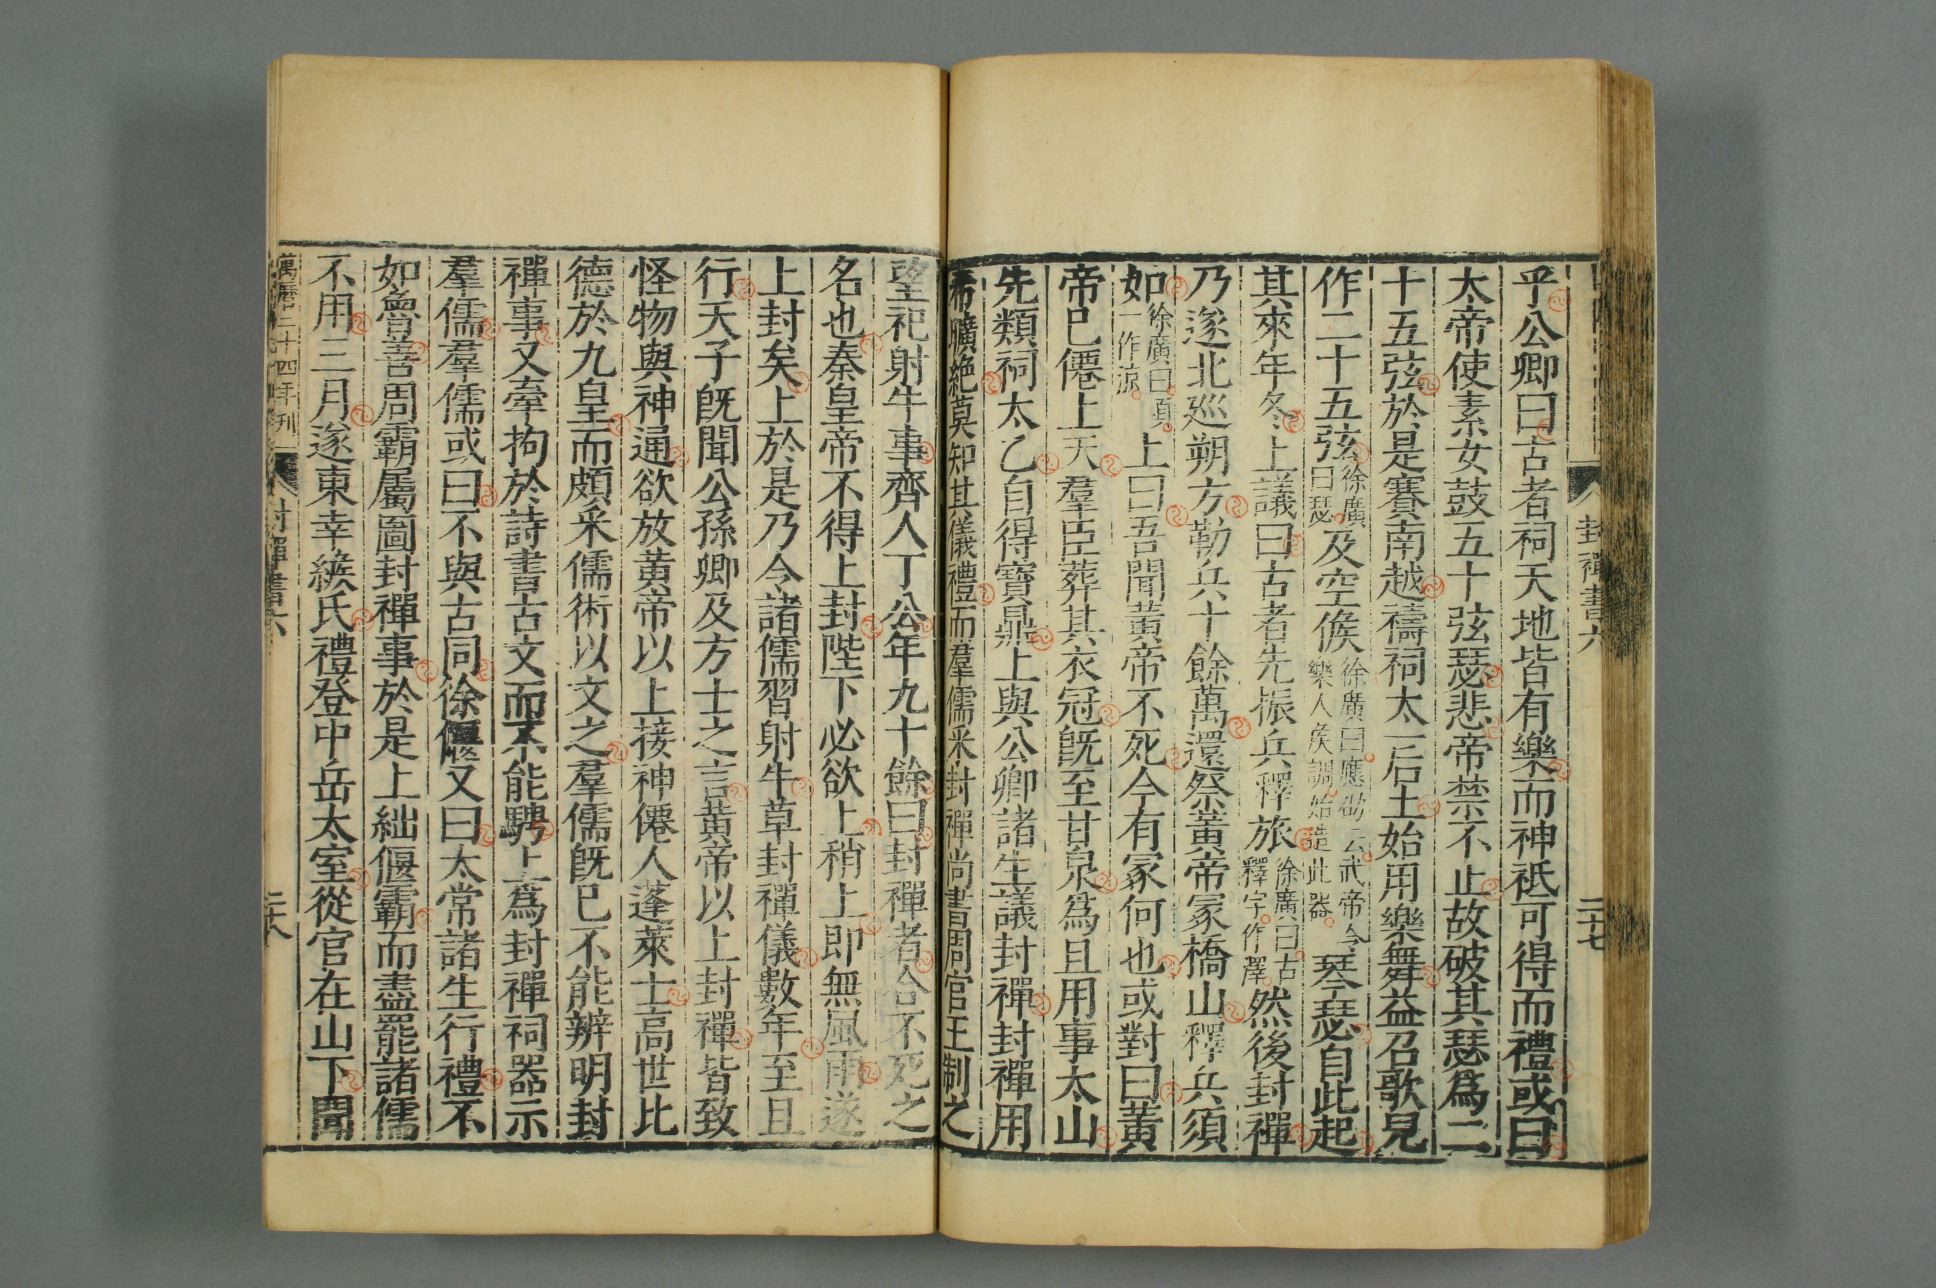 封禪書六
二十七
乎公卿曰古者祠天地皆有樂而神祗可得而禮或曰
太帝使素女鼓五十弦瑟悲帝禁不止故破其瑟爲二
十五弦於是賽南越禱祠太一后土始用樂舞益召歌兒
作二十五弦徐廣曰瑟及空侯徐廣曰應劭云武帝令樂人侯調始造此器琴瑟自此起
其來年冬上議曰古者先振兵釋旅徐廣曰古釋字作澤然後封禪
乃遂北巡朔方勒兵十餘萬還祭黃帝冢橋山釋兵須
如徐廣曰須一作涼上曰吾聞黃帝不死今有冢何也或對曰黃
帝已僊上天羣臣葬其衣冠旣至甘泉爲且用事太山
先類祠太乙自得寶鼎上與公卿諸生議封禪封禪用
希曠絶莫知其儀禮而羣儒采封禪尚書周官王制之
望祀射牛事齊人丁公年九十餘曰封禪者合不死之
名也秦皇帝不得上封陛下必欲上稍上即無風雨遂
上封矣上於是乃令諸儒習射牛草封禪儀數年至且
行天子旣聞公孫卿及方士之言黃帝以上封禪皆致
怪物與神通欲放黃帝以上接神僊人蓬萊士高世比
德於九皇而頗采儒術以文之羣儒旣已不能辨明封
禪事又牽拘於詩書古文而不能騁上爲封禪祠器示
羣儒羣儒或曰不與古同徐偃又曰太常諸生行禮不
如魯善周霸屬圖封禪事於是上絀偃霸而盡罷諸儒
不用三月遂東幸緱氏禮登中岳太室從官在山下聞
萬曆二十四年刊
封禪書六
二十八